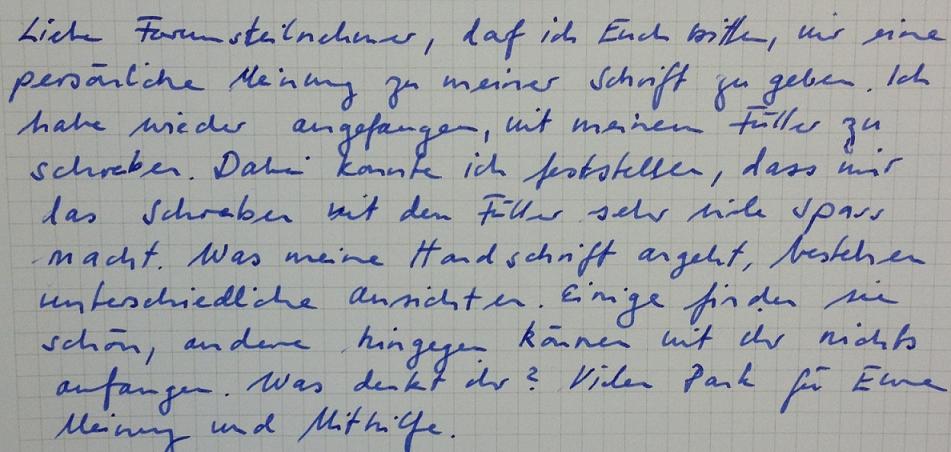 Liebe Forumsteilnehmer, darf ich Euch bitten, mir eine
persönliche Meinung zu meiner Schrift zu geben. Ich
habe wieder angefangen, mit meinem Füller zu
schreiben. Dabei konnte ich feststellen, dass mir
das Schreiben mit dem Füller sehr viele spass
macht. Was meine Handschrift angeht, bestehen
unterschiedliche Ansichten. Einige finden sie
schön, andere hingegen können mit ihr nichts
anfangen. Was denkt ihr? Vielen Dank für Eure
Meinung und Mithilfe.